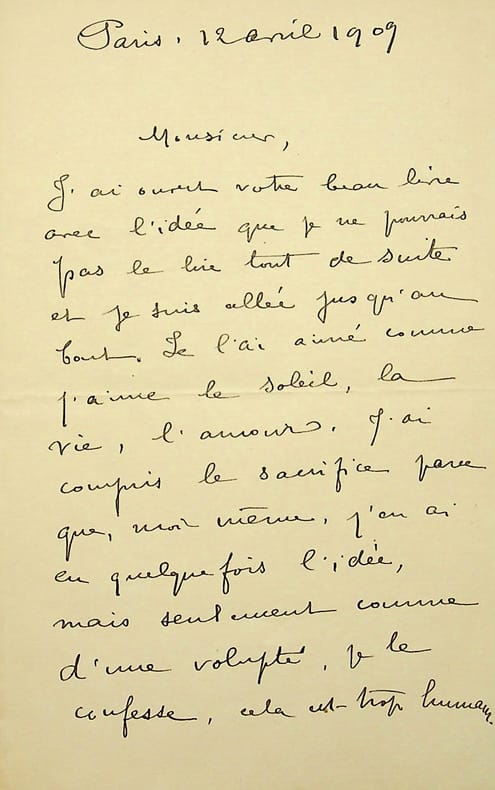 Paris. 12 avril 1909
Monsieur,
J'ai ouvert votre beau livre
avec l'idée que je ne pourrais
pas le lire tout de suite
et je suis allée jusqu'au
bout. Je l'ai aimé comme
j'aime le soleil, la
vie, l'amour. J'ai
compris le sacrifice parce
que, moi même, j'en ai
eu quelquefois l'idée,
mais seulement comme
d'une volupté, je le
confesse, cela est trop humain.